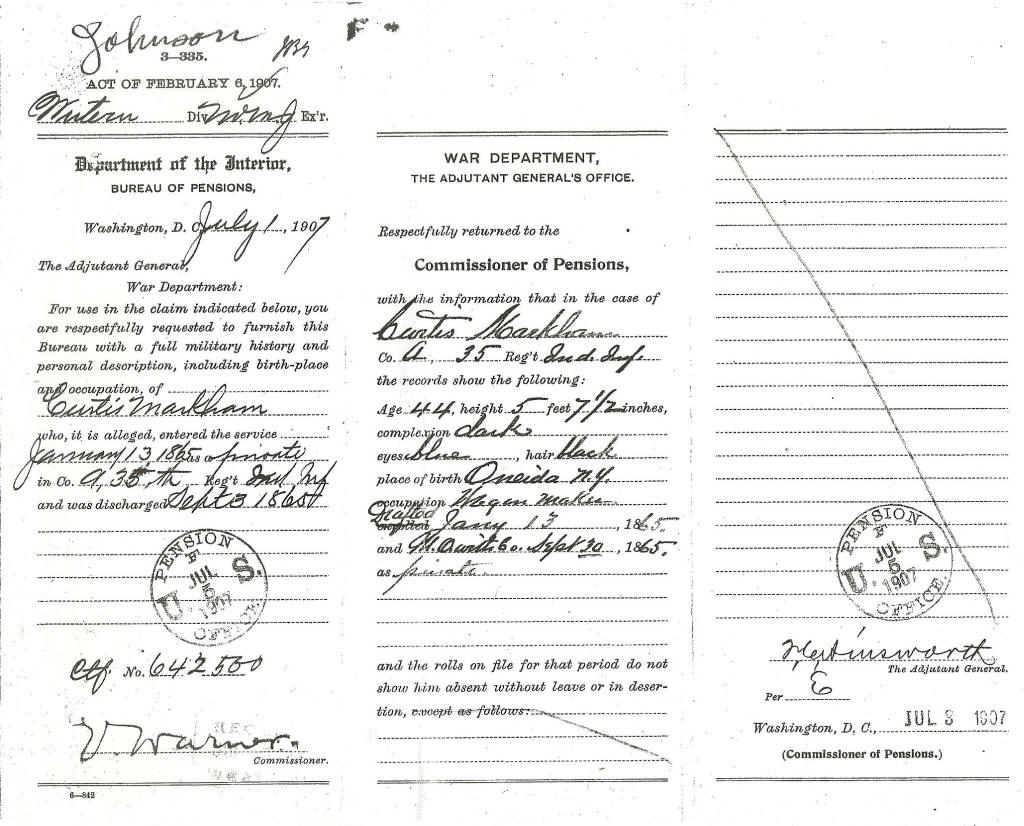 Johnson
3—335.
ACT OF FEBRUARY 6, 1907.
Western Div. Ex'r.
Department of the Interior,
BUREAU OF PENSIONS,
Washington, D. C. July 1, 1907
The Adjutant General,
War Department:
For use in the claim indicated below, you
are respectfully requested to furnish this
Bureau with a full military history and
personal description, including birth-place
and occupation, of
Curtis Markham
who, it is alleged, entered the service
January 13, 1865 as a private
in Co. A, 35 th Reg't Ind Inf
and was discharged Sept 3 1865
PENSION OFFICE
F
JUL
5
1907
U. S.
Ctf. No. 642500
V. Warner
Commissioner.
6—842
F
WAR DEPARTMENT,
THE ADJUTANT GENERAL'S OFFICE.
Respectfully returned to the
Commissioner of Pensions,
with the information that in the case of
Curtis Markham
Co. A, 35 Reg't Ind. Inf.
the records show the following:
Age 44, height 5 feet 7 1/2 inches,
complexion dark
eyes blue, hair black
place of birth Oneida N.Y.
occupation Wagon Maker
Drafted
enrolled Jany 13 1865.
and M.O. with Co. Sept 30, 1865.
as private.
and the rolls on file for that period do not
show him absent without leave or in deser-
tion, except as follows:
PENSION OFFICE
F
JUL
5
1907
U. S.
F C Ainsworth
The Adjutant General.
Per E
Washington, D. C., JUL 3 1907
(Commissioner of Pensions.)